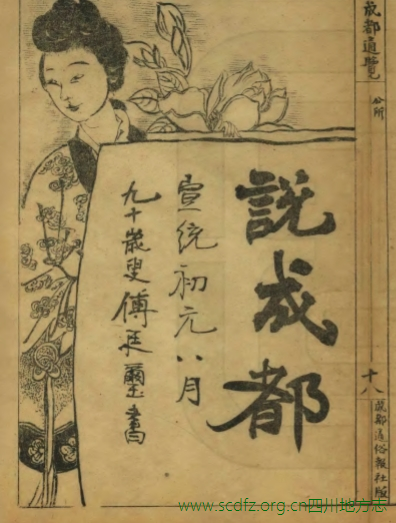 成都通覽
公所
十八
成都通俗報社版
說成都
宣統初元八月
九十歲叟傅廷璽書
www.scdfz.org.cn四川地方志